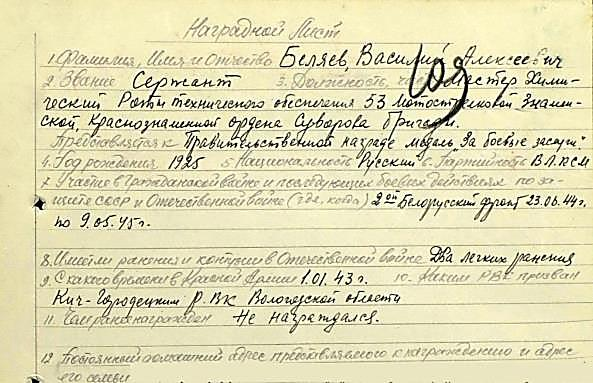 Наградной Лист
1. Фамилия, Имя и Отчество Беляев, Василий Алексеевич
2. Звание Сержант 3. Должность, часть Мастер Хими-
ческий Роты технического обеспечения 53 Мотострелковой Знамен-
ской, Краснознаменной ордена Суворова бригады.
Представляется к Правительственной награде медаль "За боевые заслуги"
4. Год рождения 1925 5. Национальность Русский 6. Партийность ВЛКСМ
7. Участие в гражданской войне и последующих боевых действиях по за-
щите СССР и Отечественной войне (где, когда) 2ой Белорусский фронт 23.06.44г.
по 9.05.45г.
8. Имеет ли ранения и контузии в Отечественной войне Два легких ранения
9. С какого времени в Красной Армии 1.01.43г. 10. Каким РВК призван
Кич-Городецким РВК Вологодской области
11. Чем ранее награжден Не награждался.
12. Постоянный домашний адрес представляемого к награждению и адрес
его семьи